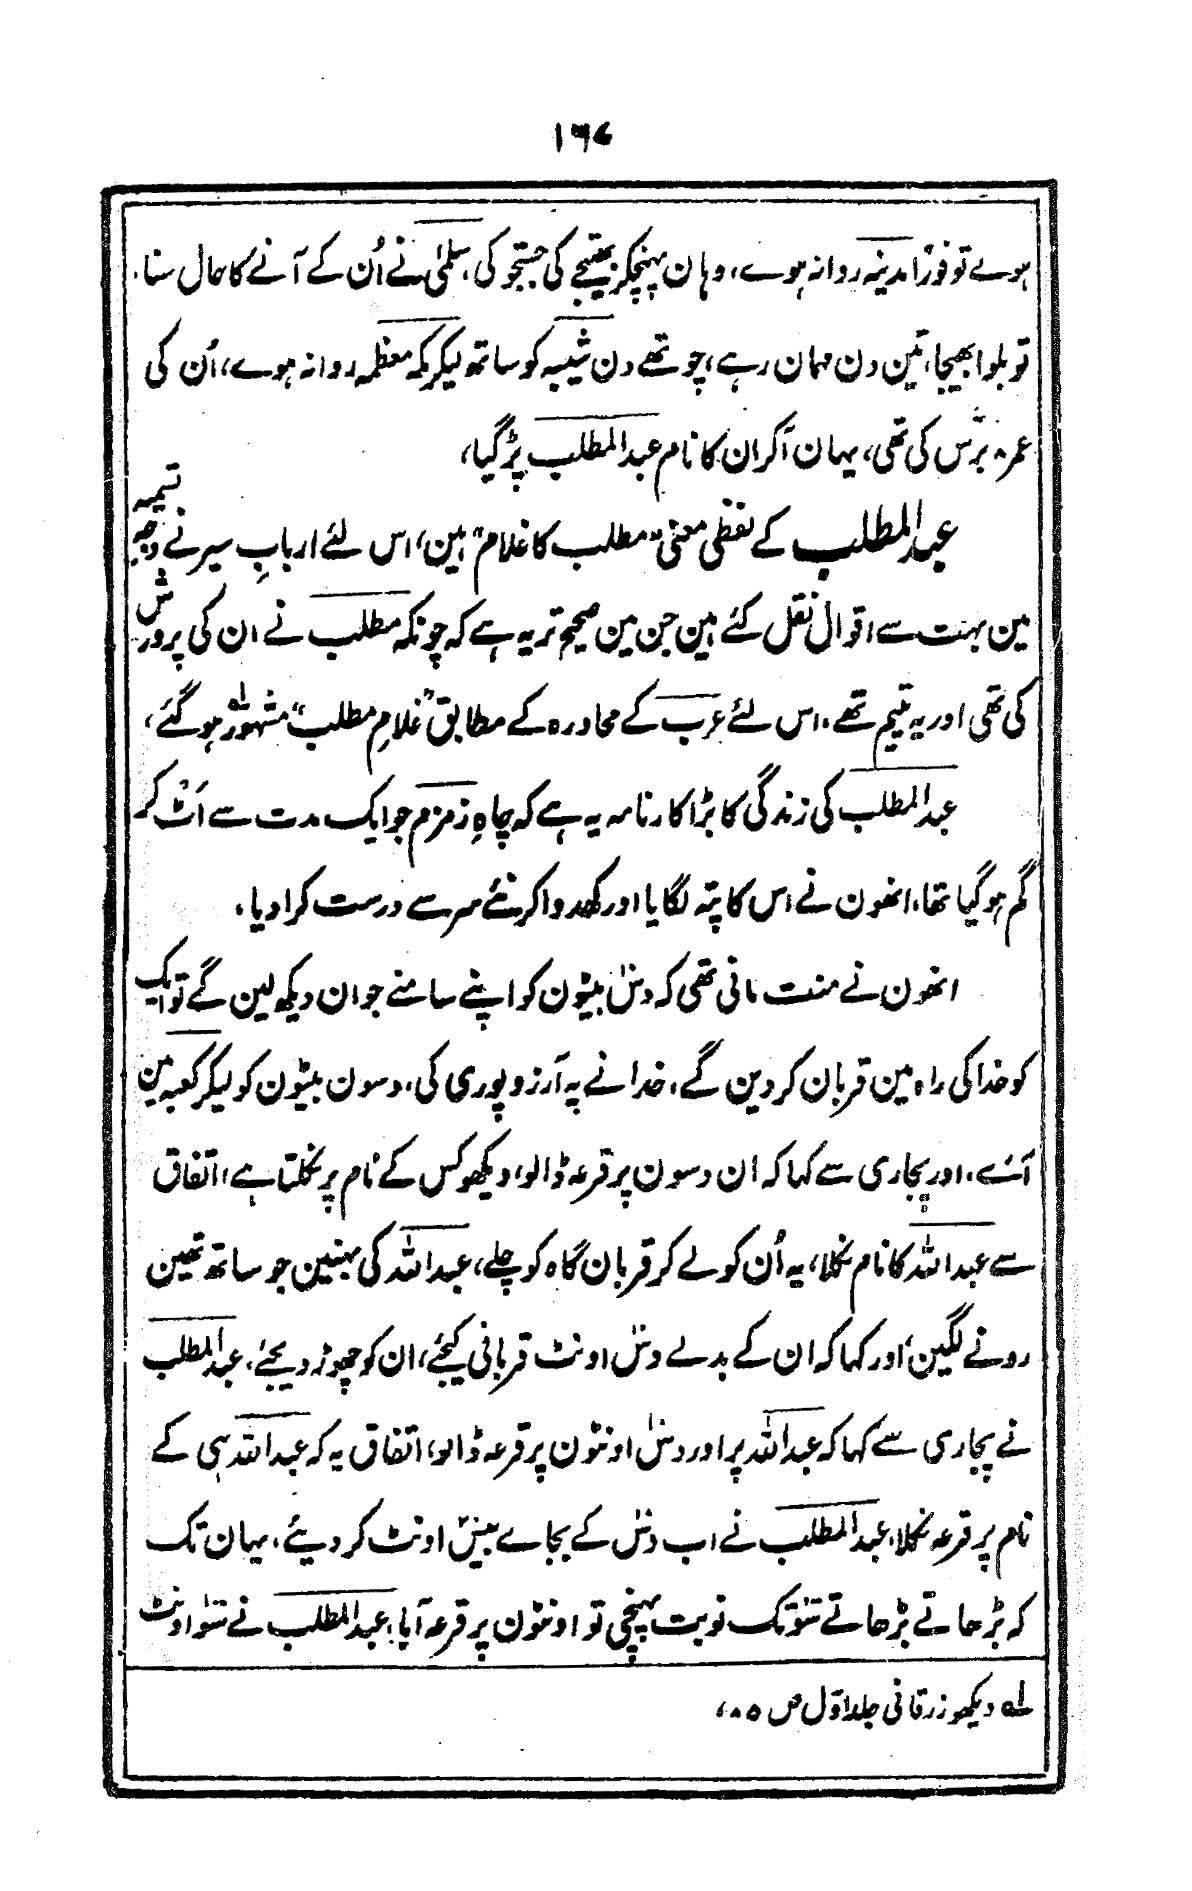 ۱۶۷
ہوے تو فوراً مدینہ روانہ ہوے، وہان پہنچکر بھتیجے کی جستجو کی، سلمیٰ نے اُن کے آنے کا حال سنا،
تو بلوا بھیجا، تین دن مہمان رہے، چوتھے دن شیبہ کو ساتھ لیکر مکہ معظمہ روانہ ہوے، اُن کی
عمر ۸ برس کی تھی، یہان آکر ان کا نام عبدالمطلب پڑگیا،
عبدالمطلب کے لفظی معنی "مطلب کا غلام" ہین، اس لئے اربابِ سیر نے وجہ تسمیہ
مین بہت سے اقوال نقل کئے ہین جن مین صحیح تر یہ ہے کہ چونکہ مطلب نے ان کی پرورش
کی تھی اور یہ یتیم تھے، اس لئے عرب کے محاورہ کے مطابق "غلامِ مطلب" مشہور ہوگئے، لہ
عبدالمطلب کی زندگی کا بڑا کارنامہ یہ ہے کہ چاہِ زمزم جو ایک مدت سے اَٹ کر
گم ہوگیا تھا، انھون نے اس کا پتہ لگایا اور کھدواکر نئے سر سے درست کرادیا،
انھون نے منت مانی تھی کہ دس بیٹون کو اپنے سامنے جوان دیکھ لین گے تو ایک
کو خدا کی راہ مین قربان کردین گے، خدا نے یہ آرزو پوری کی، دسون بیٹون کو لیکر کعبہ مین
آئے، اور پجاری سے کہا کہ ان دسون پر قرعہ ڈالو، دیکھو کس کے نام پر نکلتا ہے، اتفاق
سے عبداللہ کا نام نکلا، یہ اُن کو لے کر قربان گاہ کو چلے، عبداللہ کی بہنین جو ساتھ تھین
رونے لگین، اور کہا کہ ان کے بدلے دس اونٹ قربانی کیجئے، ان کو چھوڑ دیجئے، عبدالمطلب
نے پجاری سے کہا کہ عبداللہ پر اور دس اونٹون پر قرعہ ڈالو، اتفاق یہ کہ عبداللہ ہی کے
نام پر قرعہ نکلا، عبدالمطلب نے اب دس کے بجاے بیس اونٹ کردیئے، یہان تک
کہ بڑھاتے بڑھاتے سو تک نوبت پہنچی تو اونٹون پر قرعہ آیا، عبدالمطلب نے سو اونٹ
لہ دیکھو زرقانی جلد اوّل ص ۸۵،